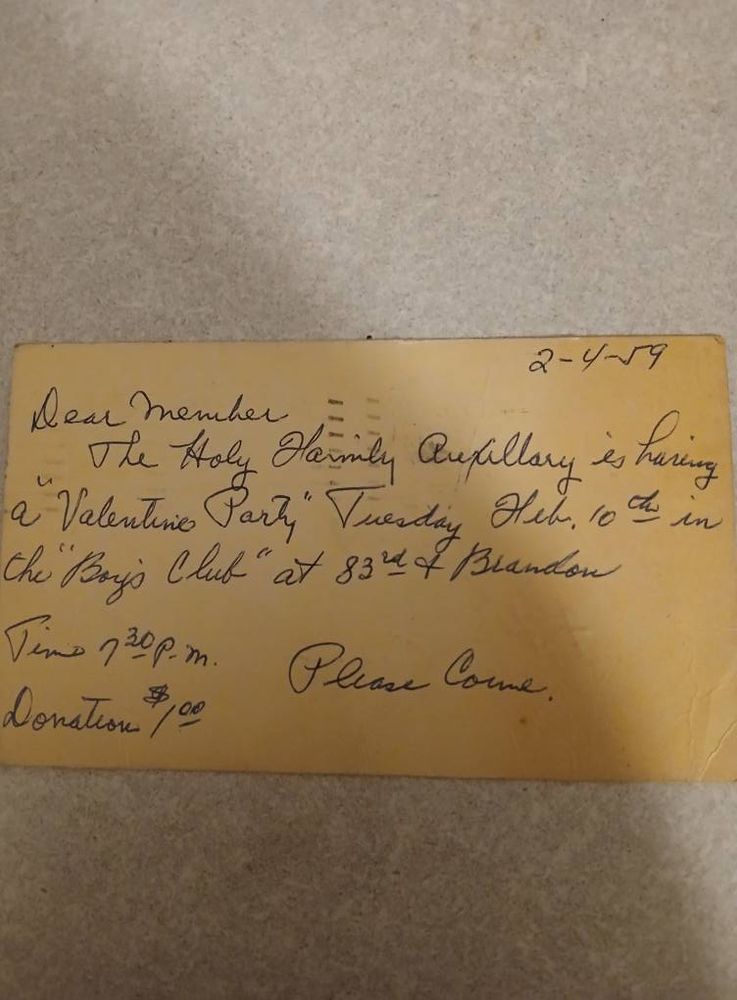 2-4-59
Dear Member
The Holy Family Auxillary is having
a "Valentine Party" Tuesday Feb. 10th in
the "Boy's Club" at 83rd & Brandon
Time 7 30 P.M.
Please Come.
Donation $1 00